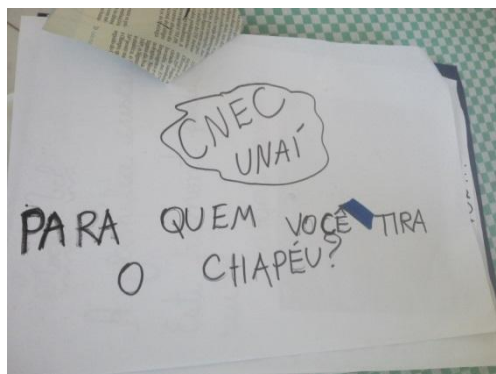 CNEC
UNAÍ
PARA QUEM VOCÊ TIRA
O CHAPÉU?